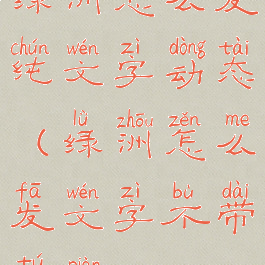 绿洲怎么发
chún wén zì dòng tài
纯文字动态
lǜ zhōu zěn me
（绿洲怎么
fā wén zì bù dài
发文字不带